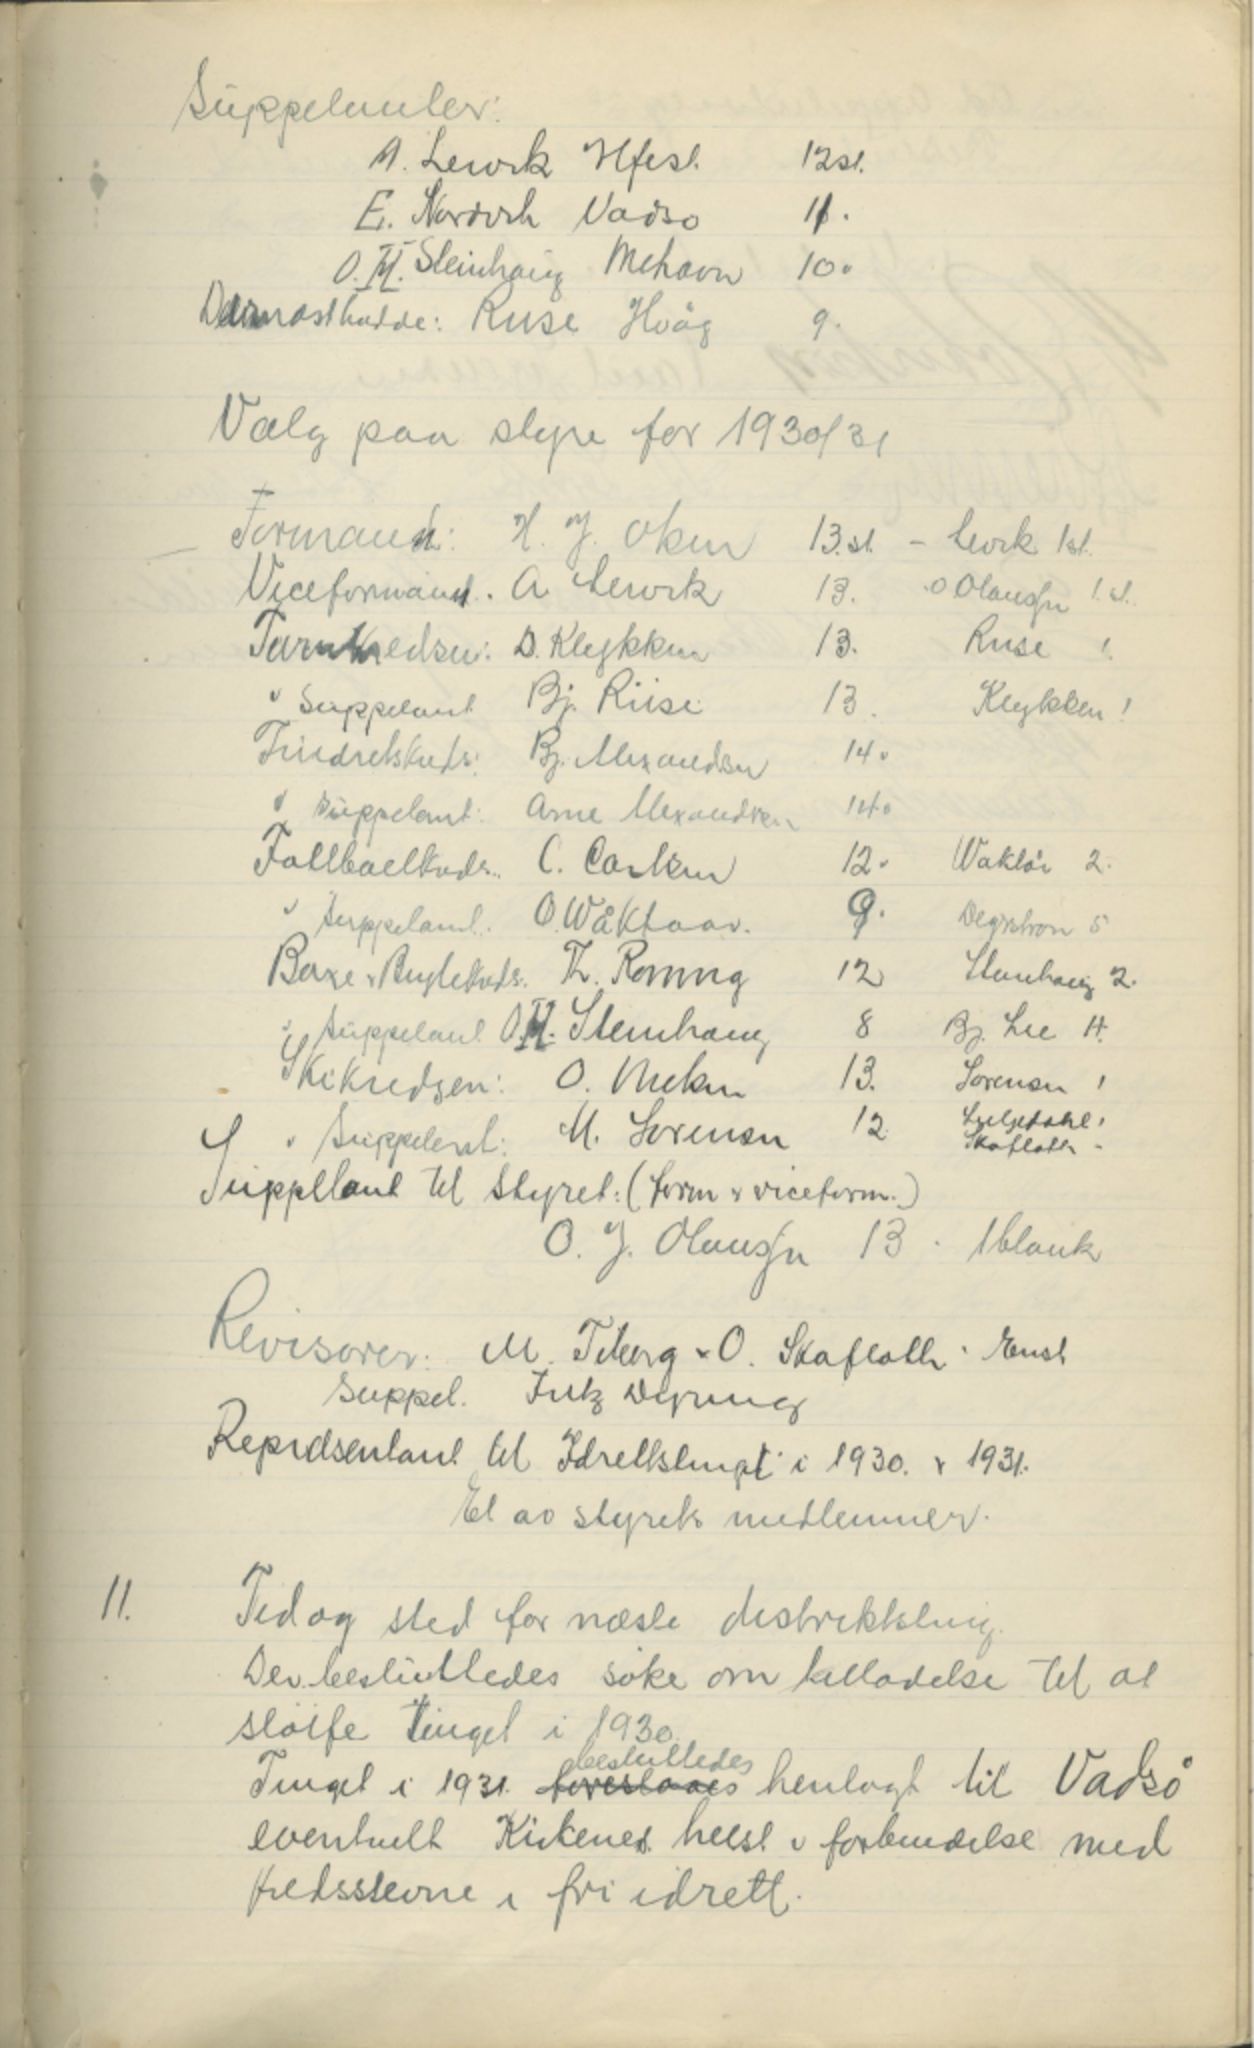 Suppelanter:
A. Lervik Hfest. 12 st.
E. Nordvik Vadsø 11.
O. M. Steinhaug Mehavn 10.
Dernæst hadde: Riise Hvåg 9.
Valg paa styre for 1930/31
Formann: H. J. Oken 13. st. - Lervik 1 st.
Viceformann. A Lervik 13. O Olaussen 1 st.
Turnkredsen: D. Kleykken 13. Riise 1.
" Suppelant Bj. Riise 13. Kleykken 1
Friidretskreds: Bj. Alexandsen 14.
" Suppelant: Arne Alexandsen 14.
Fotballkreds. C. Carlsen 12. Waktør 2.
" Suppelant. O. Wåktaar. 9. Degrstrøm 5
Boxe & Brytekreds. Th. Ronning 12 Steinhaug 2.
" Suppelant O. M. Steinhaug 8 Bj. Lie 4.
Skikredsen: O. Meken 13. Sorensen 1
" Suppelent: M. Sorensen 12. Liljedahl 1
Skafloth -
Suppellant til Styret: (form & viceform.)
O. J. Olaussen 13 . 1 blank
Revisorer: M. Tiberg & O. Skafloth. Enst
Suppel. Fritz Dyrnug
Representant til Idrettstinget i 1930. & 1931.
Et av styrets medlemmer.
11. Tid og sted for næste distriktsting.
Der besluttedes søke om tilladelse til at
sløife tinget i 1930.
besluttedes
Tinget i 1931. foreslaaes henlagt til Vadsø
eventuelt Kirkenes helst i forbindelse med
kredsstevne i fri idrett.